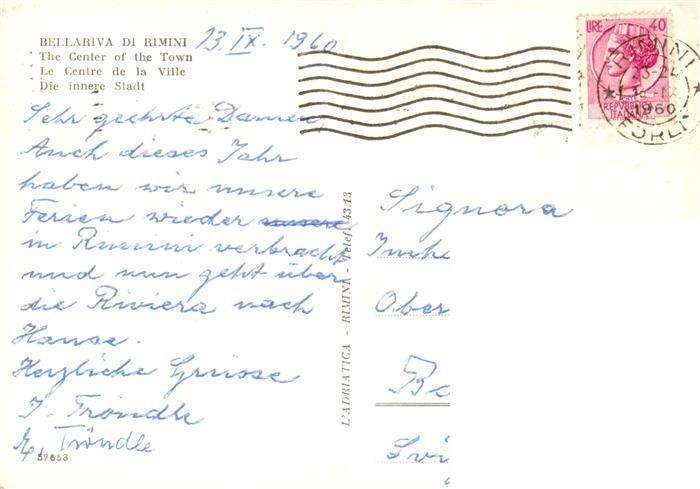 BELLARIVA DI RIMINI
The Center of the Town
Le Centre de la Ville
Die innere Stadt
13. IX. 1960
LIRE 40
REPUBBLICA
ITALIANA
RIMINI
1960
FORLI
Sehr geehrte Damen,
Auch dieses Jahr
haben wir unsere
Ferien wieder unsere
in Rimini verbracht
und nun geht über
die Riviera nach
Hause.
Herzliche Grüsse
J. Tröndle
Tröndle
37653
L'ADRIATICA - RIMINI - Telef. 43.13
Signora
Ober
Be
Svi